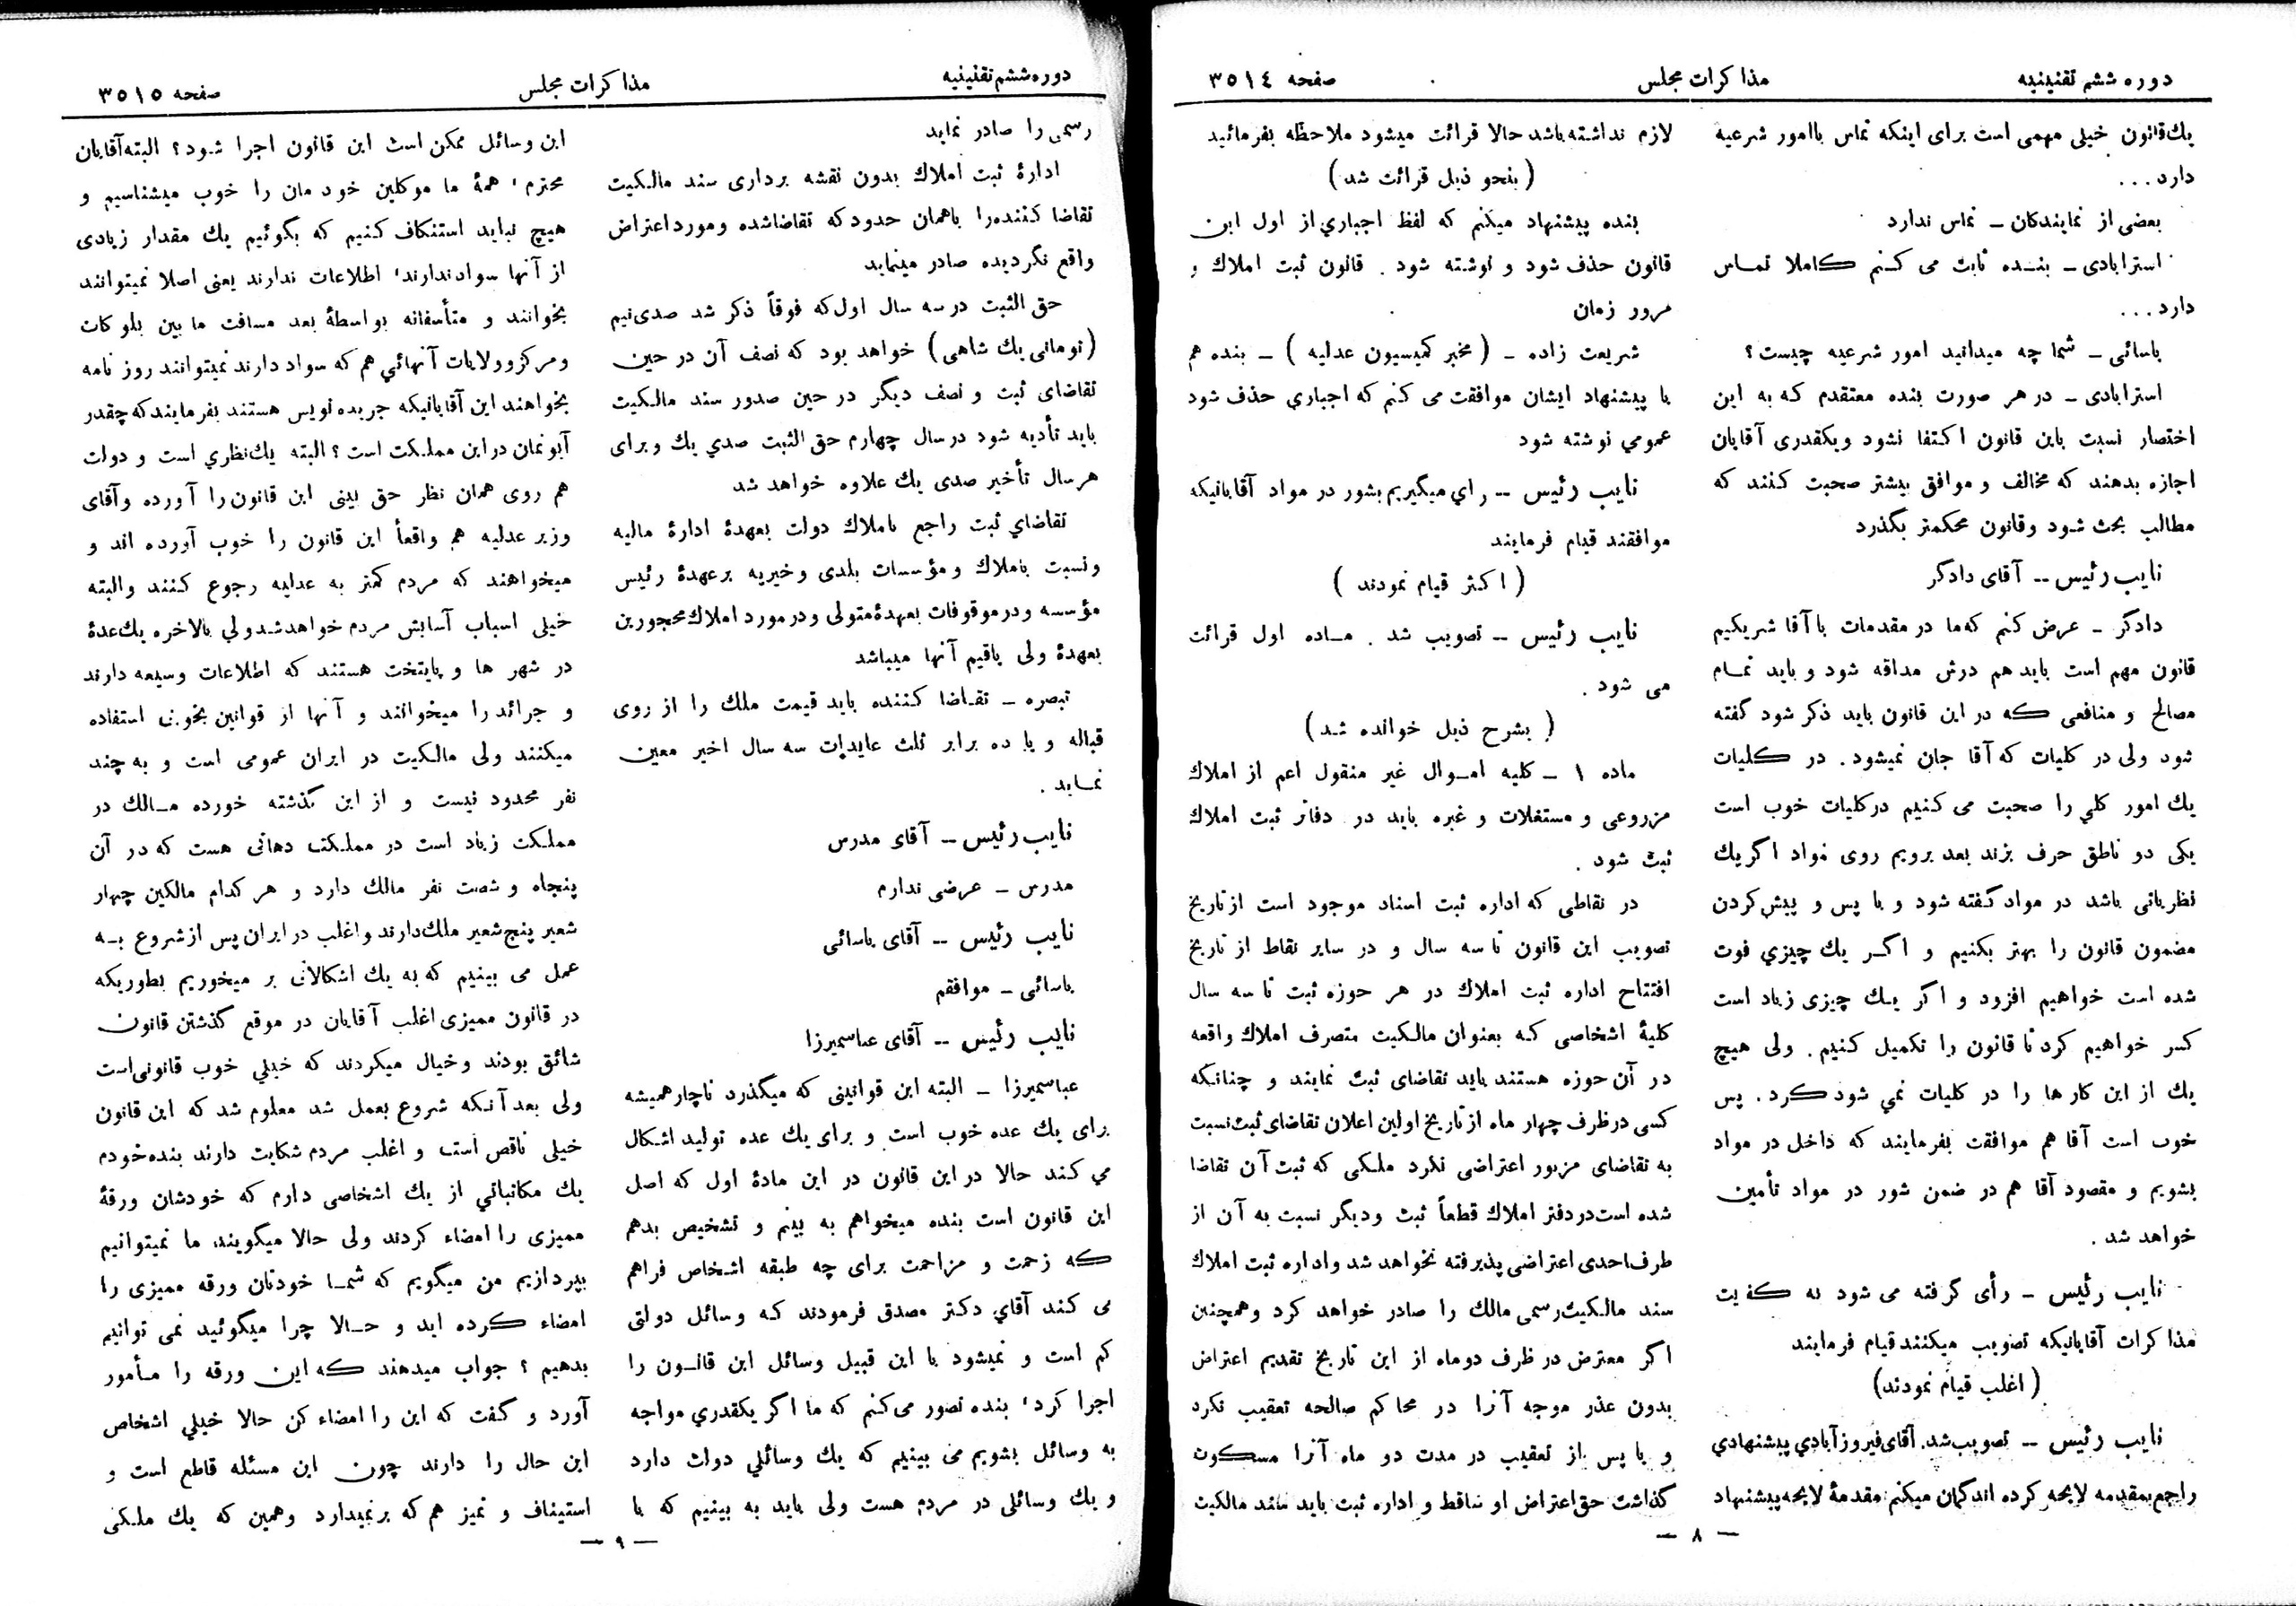 دوره ششم تقنینیه
مذاکرات مجلس
صفحه ۳۵۱٤
یك‌قانون خیلی مهمی است برای اینکه تماس باامور شرعیه
دارد...
بعضی از نمایندکان ــ تماس ندارد
استرابادی ــ بنده ثابت می کنم کاملا تماس
دارد...
یاسائی ــ شما چه میدانید امور شرعیه چیست؟
استرابادی ــ در هر صورت بنده معتقدم که به این
اختصار نسبت باین قانون اکتفا نشود ویکقدری آقایان
اجازه بدهند که مخالف و موافق بیشتر صحبت کنند که
مطالب بحث شود وقانون محکمتر بگذرد
نایب رئیس ــ آقای دادگر
دادگر ــ عرض کنم که‌ما در مقدمات با آقا شریکیم
قانون مهم است باید هم درش مداقه شود و باید تمام
مصالح و منافعی که در این قانون باید ذکر شود گفته
شود ولی در کلیات که آقا جان نمیشود. در کلیات
یك امور کلی را صحبت می کنیم درکلیات خوب است
یکی دو ناطق حرف بزند بعد برویم روی مواد اگر یك
نظریاتی باشد در مواد گفته شود و با پس و پیش کردن
مضمون قانون را بهتر بکنیم و اگر یك چیزي فوت
شده است خواهیم افزود و اگر یك چیزی زیاد است
کسر خواهیم کرد تا قانون را تکمیل کنیم. ولی هیچ
یك از این کار ها را در کلیات نمی شود کرد. پس
خوب است آقا هم موافقت بفرمایند که داخل در مواد
بشویم و مقصود آقا هم در ضمن شور در مواد تأمین
خواهد شد.
نایب رئیس ــ رأی گرفته می شود به کفایت
مذاکرات آقایانیکه تصویب میکنند قیام فرمایند
(اغلب قیام نمودند)
نایب رئیس ــ تصویب شد. آقای فیروزآبادي پیشنهادي
راجع بمقدمه لایحه کرده اند گمان میکنم مقدمهٔ لایحه پیشنهاد
لازم نداشته باشد حالا قرائت میشود ملاحظه بفرمائید
(بنحو ذیل قرائت شد)
بنده پیشنهاد میکنم که لفظ اجباري از اول این
قانون حذف شود و نوشته شود. قانون ثبت املاك و
مرور زمان
شریعت زاده ــ (مخبر کمیسیون عدلیه) ــ بنده هم
با پیشنهاد ایشان موافقت می کنم که اجباري حذف شود
عمومي نوشته شود
نایب رئیس ــ راي میگیریم بشور در مواد آقایانیکه
موافقند قیام فرمایند
(اکثر قیام نمودند)
نایب رئیس ــ تصویب شد. ماده اول قرائت
می شود.
(بشرح ذیل خوانده شد)
ماده ۱ ــ کلیه اموال غیر منقول اعم از املاك
مزروعی و مستغلات و غیره باید در دفاتر ثبت املاك
ثبت شود.
در نقاطی که اداره ثبت اسناد موجود است از تاریخ
تصویب این قانون تا سه سال و در سایر نقاط از تاریخ
افتتاح اداره ثبت املاك در هر حوزه ثبت تا سه سال
کلیهٔ اشخاصی که بعنوان مالکیت متصرف املاك واقعه
در آن حوزه هستند باید تقاضای ثبت نمایند و چنانکه
کسی در ظرف چهار ماه از تاریخ اولین اعلان تقاضای ثبت نسبت
به تقاضای مزبور اعتراضی نکرد ملکی که ثبت آن تقاضا
شده است در دفتر املاك قطعاً ثبت ودیگر نسبت به آن از
طرف احدی اعتراضی پذیرفته نخواهد شد واداره ثبت املاك
سند مالکیت رسمی مالك را صادر خواهد کرد وهمچنین
اگر معترض در ظرف دوماه از این تاریخ تقدیم اعتراض
بدون عذر موجه آنرا در محاکم صالحه تعقیب نکرد
و یا پس از تعقیب در مدت دو ماه آنرا مسکوت
گذاشت حق اعتراض او ساقط و اداره ثبت باید سند مالکیت
— ۸ —
دوره ششم تقنینیه
مذاکرات مجلس
صفحه ۳۵۱۵
رسمی را صادر نماید
ادارهٔ ثبت املاك بدون نقشه برداری سند مالکیت
تقاضا کننده‌را باهمان حدود که تقاضاشده ومورد اعتراض
واقع نگردیده صادر مینماید
حق الثبت در سه سال اول که فوقاً ذکر شد صدی‌نیم
(تومانی یك شاهی) خواهد بود که نصف آن در حین
تقاضای ثبت و نصف دیگر در حین صدور سند مالکیت
باید تأدیه شود در سال چهارم حق الثبت صدي یك و برای
هر سال تأخیر صدی یك علاوه خواهد شد
تقاضاي ثبت راجع باملاك دولت بعهدهٔ ادارهٔ مالیه
ونسبت باملاك ومؤسسات بلدی وخیریه بر عهدهٔ رئیس
مؤسسه ودر موقوفات بعهدهٔ متولی ودر مورد املاك محجورین
بعهدهٔ ولی یاقیم آنها میباشد
تبصره ــ تقاضا کننده باید قیمت ملك را از روی
قباله و یا ده برابر ثلث عایدات سه سال اخیر معین
نماید.
نایب رئیس ــ آقای مدرس
مدرس ــ عرضی ندارم
نایب رئیس ــ آقای یاسائی
یاسائی ــ موافقم
نایب رئیس ــ آقای عباسمیرزا
عباسمیرزا ــ البته این قوانینی که میگذرد ناچار همیشه
برای یك عده خوب است و برای یك عده تولید اشکال
می کند حالا در این قانون در این مادهٔ اول که اصل
این قانون است بنده میخواهم به بینم و تشخیص بدهم
که زحمت و مزاحمت برای چه طبقه اشخاص فراهم
می کند آقاي دکتر مصدق فرمودند که وسائل دولتی
کم است و نمیشود با این قبیل وسائل این قانون را
اجرا کرد، بنده تصور می‌کنم که ما اگر یکقدري مواجه
به وسائل بشویم می بینیم که یك وسائلي دولت دارد
و یك وسائلی در مردم هست ولی باید به بینیم که با
این وسائل ممکن است این قانون اجرا شود؟ البته آقایان
محترم، همهٔ ما موکلین خود مان را خوب میشناسیم و
هیچ نباید استنکاف کنیم که بگوئیم یك مقدار زیادی
از آنها سواد ندارند، اطلاعات ندارند یعنی اصلا نمیتوانند
بخوانند و متأسفانه بواسطهٔ بعد مسافت ما بین بلوکات
ومرکز وولایات آنهائي هم که سواد دارند نمیتوانند روز نامه
بخواهند این آقایانیکه جریده نویس هستند بفرمایند که چقدر
آبونمان در این مملکت است؟ البته یك نظري است و دولت
هم روی همان نظر حق بینی این قانون را آورده وآقای
وزیر عدلیه هم واقعاً این قانون را خوب آورده اند و
میخواهند که مردم کمتر به عدلیه رجوع کنند والبته
خیلی اسباب آسایش مردم خواهد شد ولي بالاخره یك‌عدهٔ
در شهر ها و پایتخت هستند که اطلاعات وسیعه دارند
و جرائد را میخوانند و آنها از قوانین بخوبی استفاده
میکنند ولی مالکیت در ایران عمومی است و به چند
نفر محدود نیست و از این گذشته خورده مالك در
مملکت زیاد است در مملکت دهاتی هست که در آن
پنجاه و شصت نفر مالك دارد و هر کدام مالکین چهار
شعیر پنج شعیر ملك دارند واغلب در ایران پس از شروع به
عمل می بینیم که به یك اشکالاتی بر میخوریم بطوریکه
در قانون ممیزی اغلب آقایان در موقع گذشتن قانون
شائق بودند وخیال میکردند که خیلي خوب قانونی‌است
ولی بعد آنکه شروع بعمل شد معلوم شد که این قانون
خیلی ناقص است و اغلب مردم شکایت دارند بنده خودم
یك مکاتباتي از یك اشخاصی دارم که خودشان ورقهٔ
ممیزی را امضاء کردند ولی حالا میگویند ما نمیتوانیم
بپردازیم من میگویم که شما خودتان ورقه ممیزی را
امضاء کرده اید و حالا چرا میگوئید نمی توانیم
بدهیم؟ جواب میدهند که این ورقه را مأمور
آورد و گفت که این را امضاء کن حالا خیلي اشخاص
این حال را دارند چون این مسئله قاطع است و
استیناف و تمیز هم که برنمیدارد وهمین که یك ملکی
— ۹ —